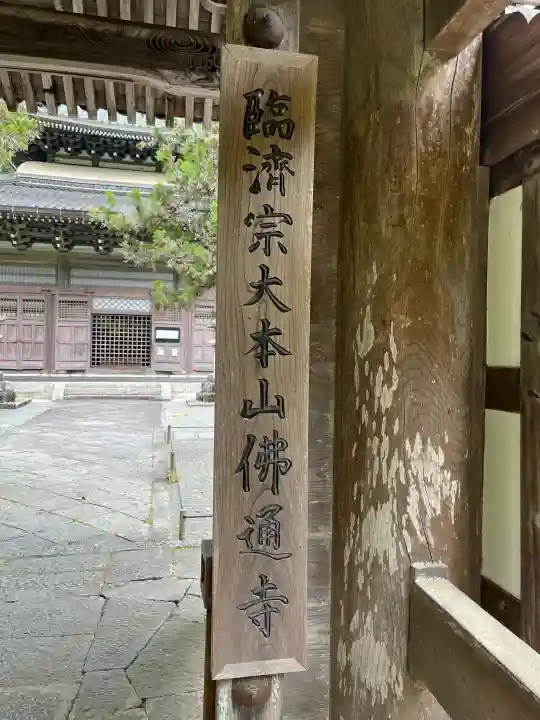 臨濟宗大本山佛通寺